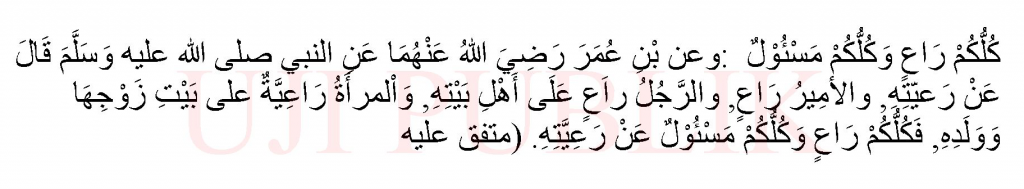 كُلُّكُمْ رَاعٍ وَكُلُّكُمْ مَسْئُوْلٌ :وعن بْنِ عُمَرَ رَضِيَ اللهُ عَنْهُمَا عَنِ النبي صلى الله عليه وَسَلَّمَ قَالَ
عَنْ رَعِيّتِهِ, والأمِيرُ رَاعٍ, والرَّجُلُ راَعٍ عَلَى أَهْلِ بَيْتِهِ, وَاْلمرأَةُ رَاعِيَّةٌ على بَيْتِ زَوْجِهَا
وَوَلَدِهِ, فَكُلُّكُمْ رَاعٍ وَكُلُّكُمْ مَسْئُوْلٌ عَنْ رَعِيَّتِهِ. (متفق عليه
UJI PUBLIK